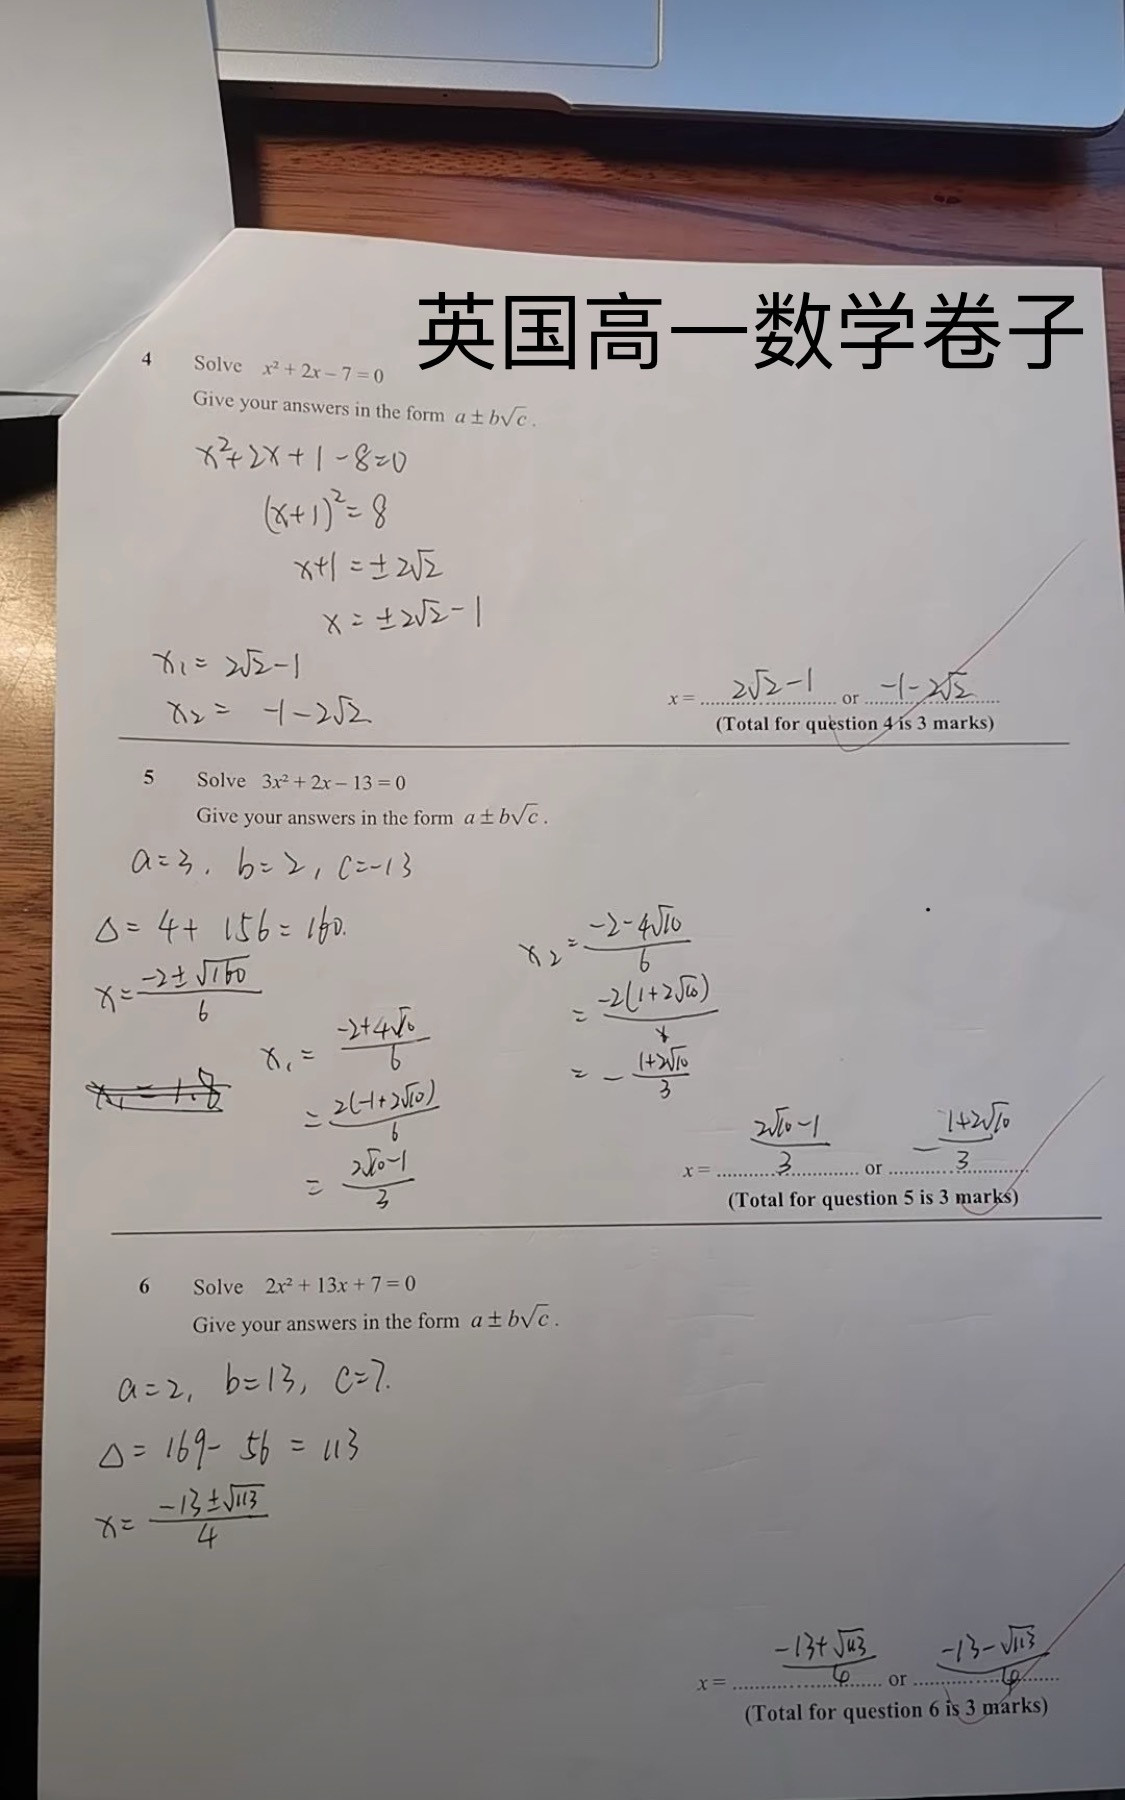 英国高一数学卷子
4 Solve x² + 2x – 7 = 0
Give your answers in the form a ± b√c .
x²+2x+1-8=0
(x+1)²=8
x+1=±2√2
x=±2√2-1
x₁=2√2-1
x₂= -1-2√2
x = 2√2-1 or -1-2√2
(Total for question 4 is 3 marks)
5 Solve 3x² + 2x – 13 = 0
Give your answers in the form a ± b√c .
a=3, b=2, c=-13
Δ= 4+ 156=160.
x=(-2±√160)/6
x₁= (-2+4√10)/6
= 2(-1+2√10)/6
= (2√10-1)/3
x₂=(-2-4√10)/6
= -2(1+2√10)
= -(1+2√10)/3
x = (2√10-1)/3 or -(1+2√10)/3
(Total for question 5 is 3 marks)
6 Solve 2x² + 13x + 7 = 0
Give your answers in the form a ± b√c .
a=2, b=13, c=7.
Δ= 169- 56 = 113
x= (-13±√113)/4
x = (-13+√113)/6 or (-13-√113)/
(Total for question 6 is 3 marks)